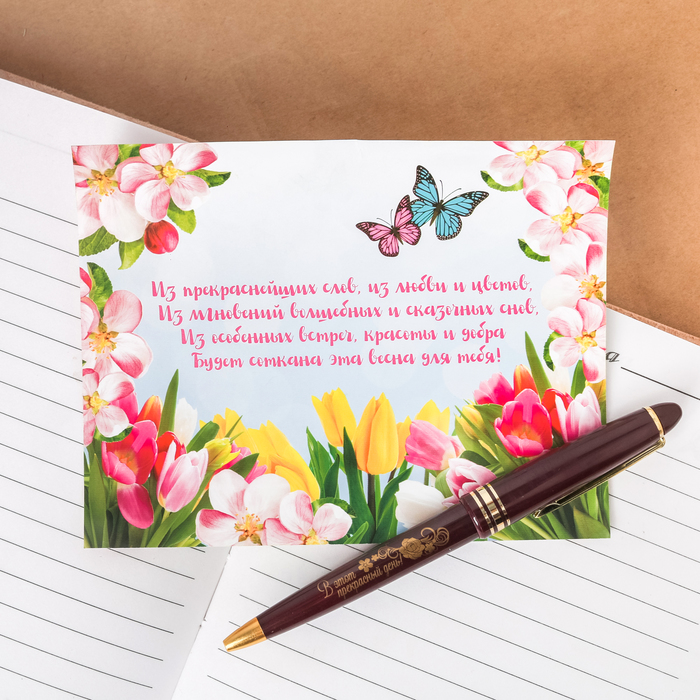 Из прекраснейших слов, из любви и цветов,
Из мгновений волшебных и сказочных снов,
Из особенных встреч, красоты и добра
Будет соткана эта весна для тебя!
В этот
прекрасный день!